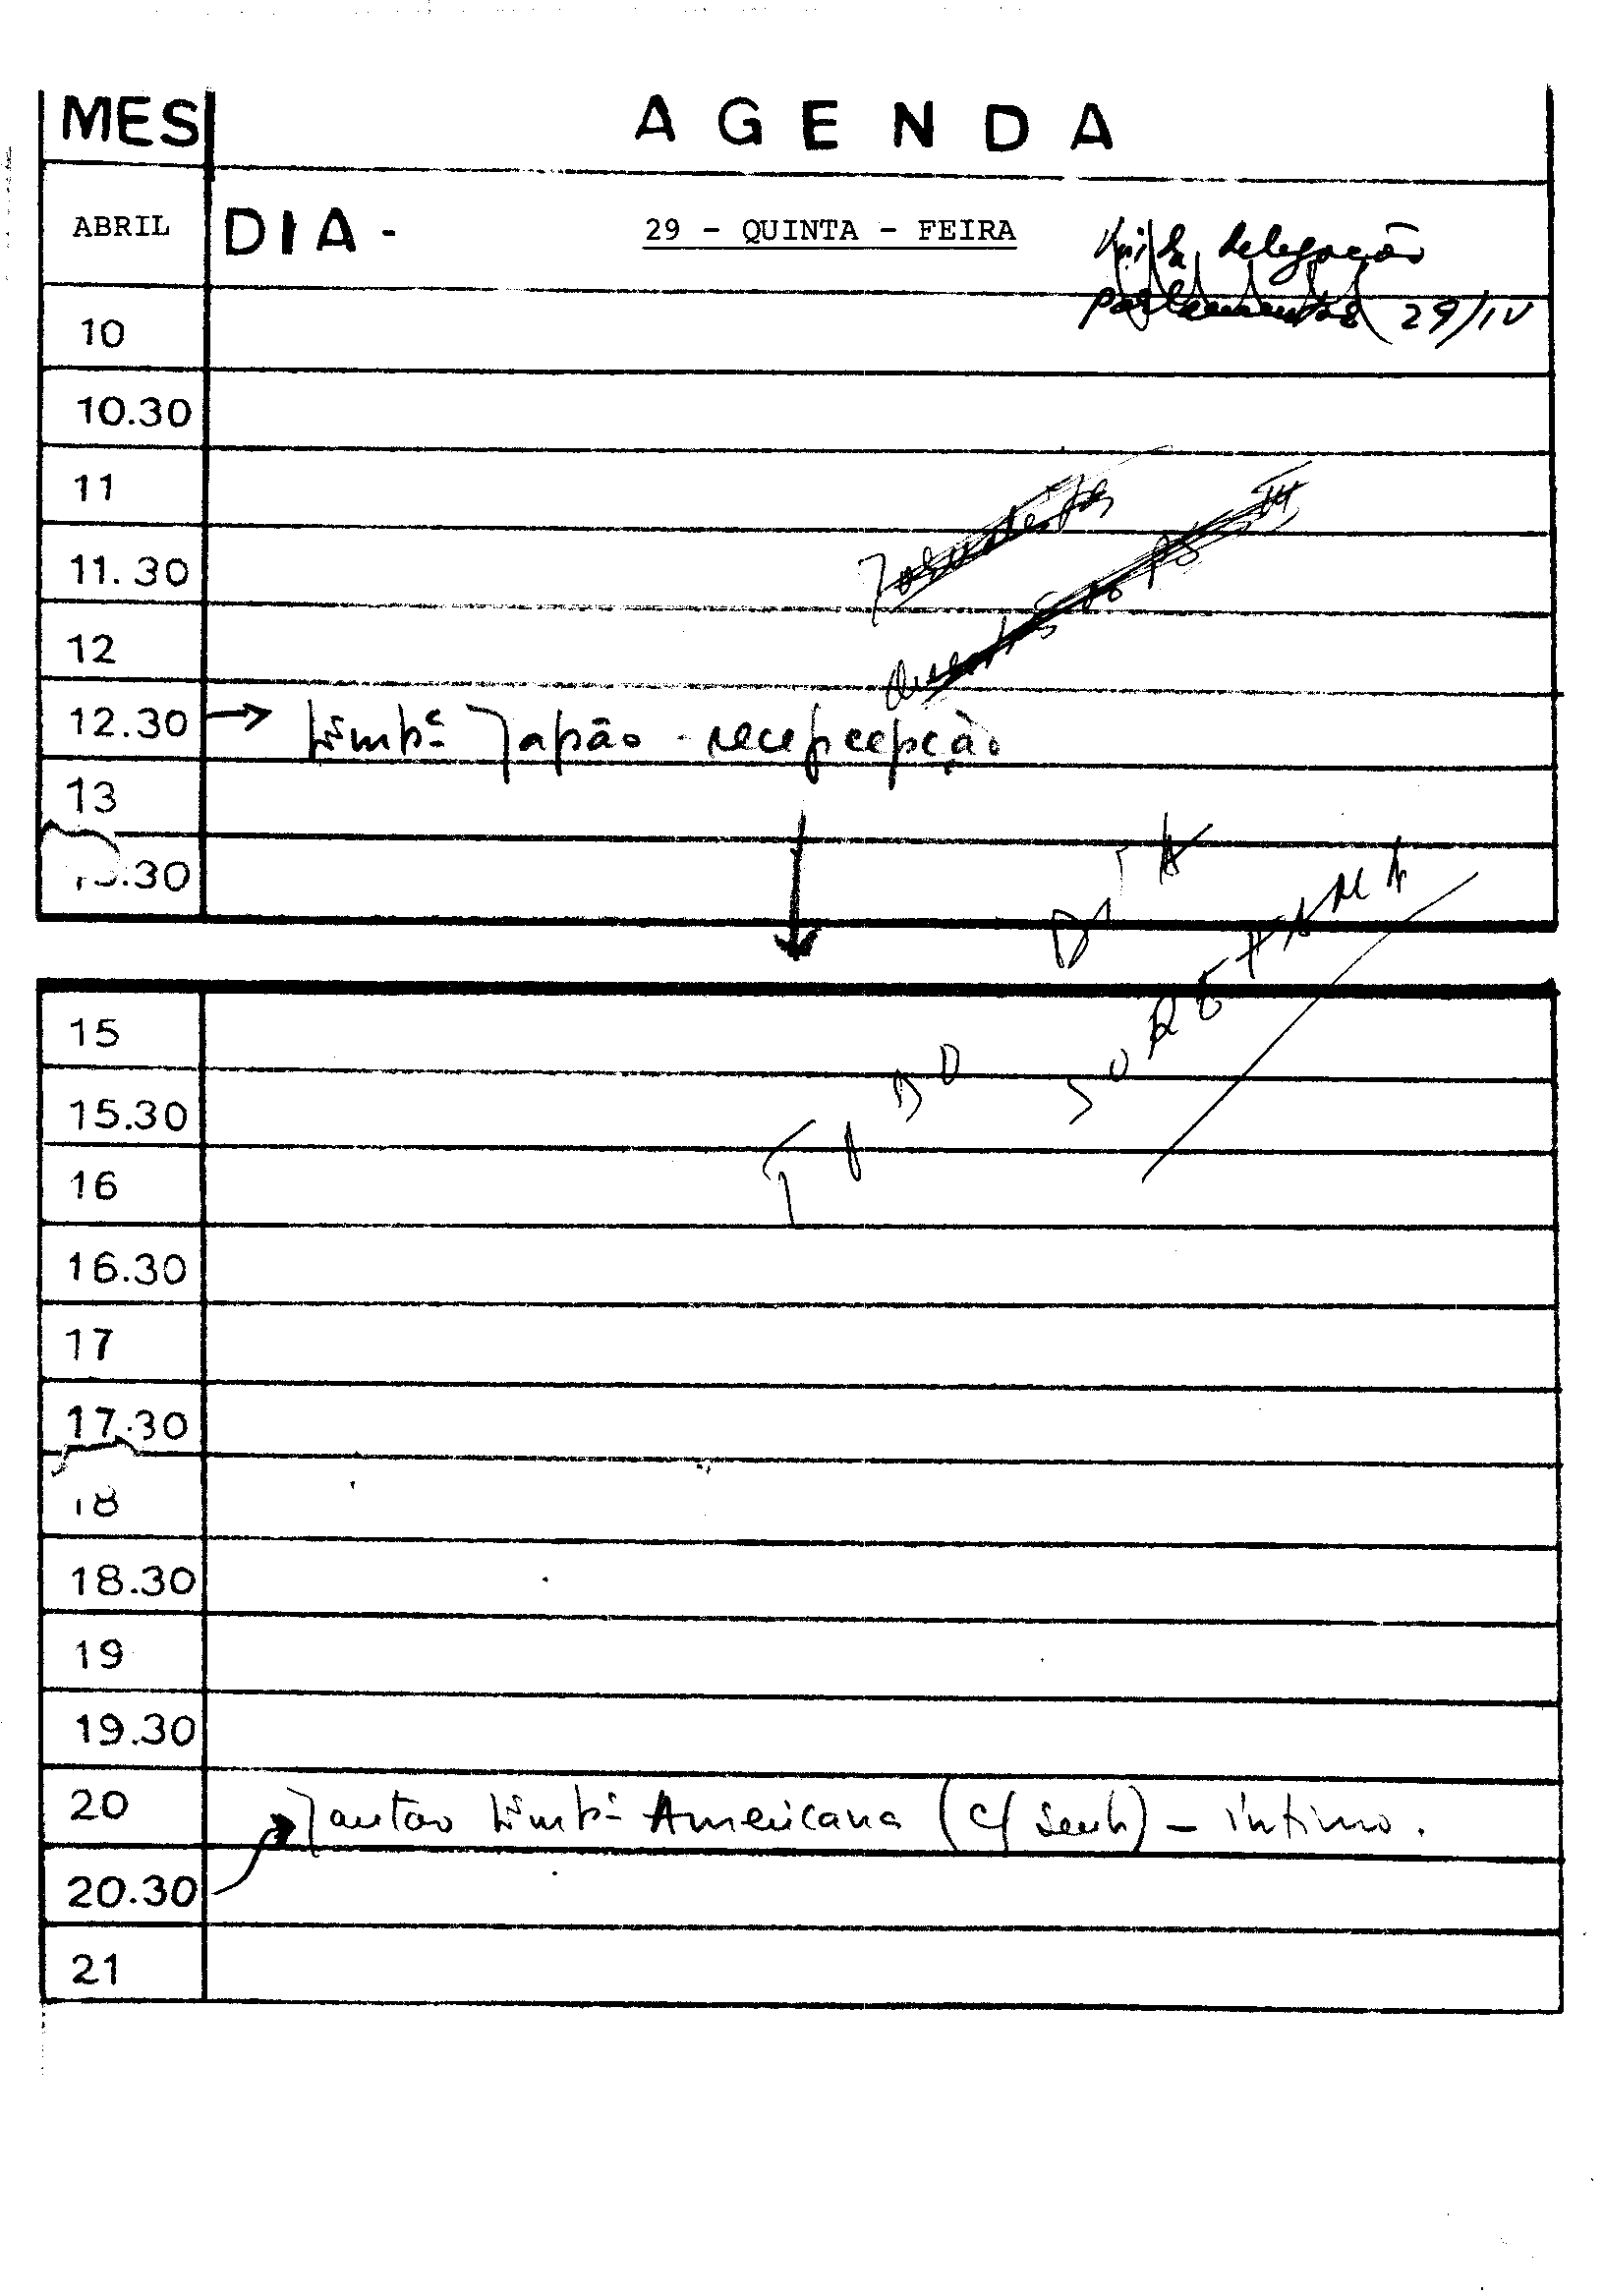 MES AGENDA
ABRIL DIA - 29 - QUINTA - FEIRA
delegação
29/IV
10
10.30
11
11.30
12
12.30 → Embª Japão - recepcepção
13
.30
DIA
TODO SO RETAMA
15
15.30
16
16.30
17
17.30
18
18.30
19
19.30
20 Jantar Embª Americana (c/ Senh) - íntimo.
20.30
21